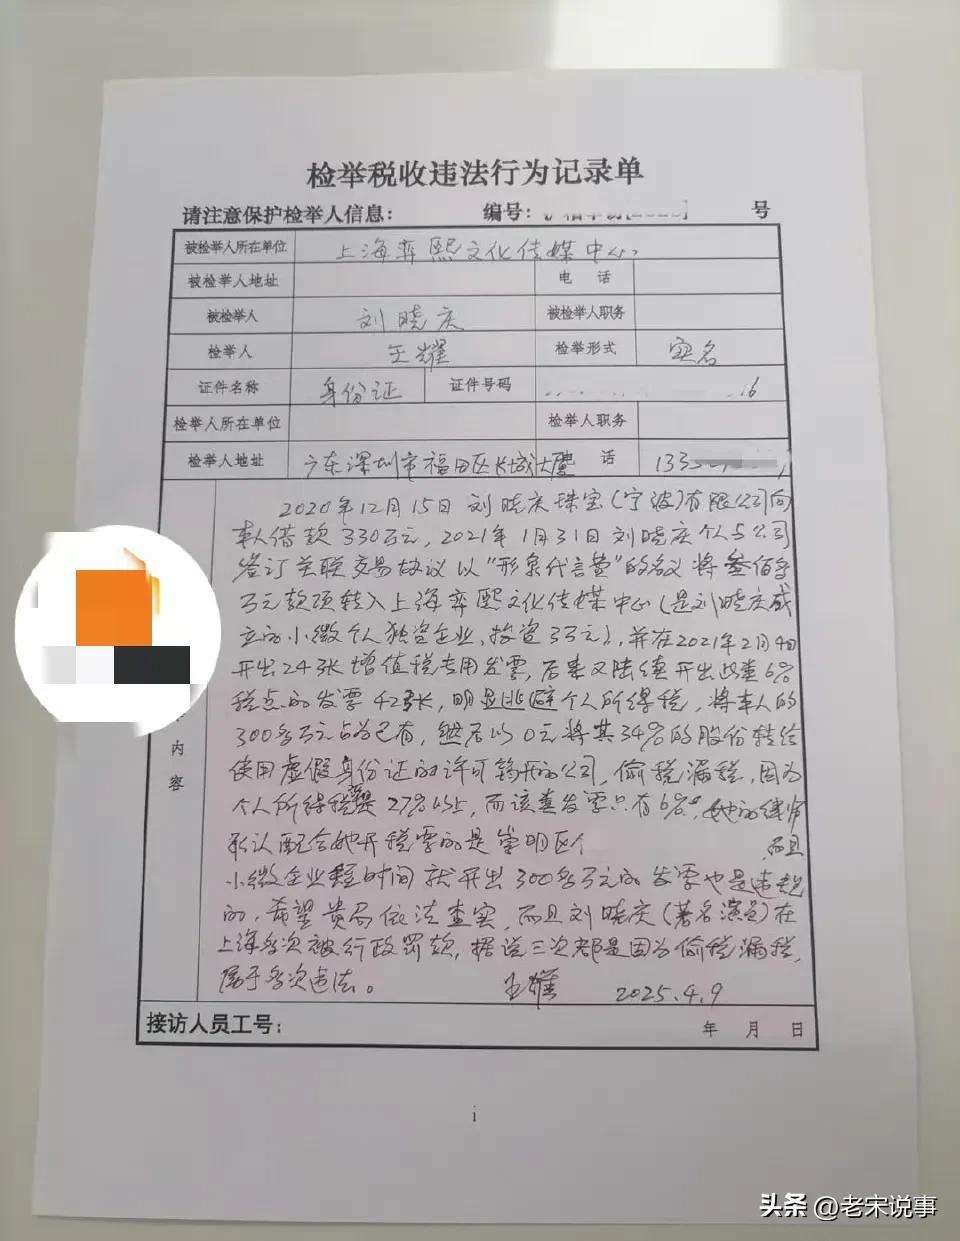 检举税收违法行为记录单
请注意保护检举人信息： 编号： 号
被检举人所在单位 上海弈熙文化传媒中心
被检举人地址 电 话
被检举人 刘晓庆 被检举人职务
检举人 王耀 检举形式 实名
证件名称 身份证 证件号码 16
检举人所在单位 检举人职务
检举人地址 广东深圳市福田区长城大厦 话 133
2020年12月15日刘晓庆珠宝(宁波)有限公司向
本人借款330万元，2021年1月31日刘晓庆个人与公司
签订关联交易协议以"形象代言费"的名义将叁佰多
万元款项转入上海弈熙文化传媒中心(是刘晓庆成
立的小微个人独资企业，投资3万元)，并在2021年2月4日
开出24张增值税专用发票，后来又陆续开出此类6%
税点的发票42张，明显逃避个人所得税，将本人的
300多万元占为己有，然后以0元将其34%的股份转给
使用虚假身份证的许可筠开的公司，偷税漏税，因为
个人所得税 27%以上，而该类发票只有6%，她的律师
承认配合她开税票的是崇明区个 而且
小微企业短时间就开出300多万元的发票也是违规
的，希望贵局依法查实，而且刘晓庆(著名演员)在
上海多次被行政罚款，据说三次都是因为偷税漏税，
属于多次违法。 王耀 2025.4.9
内
容
接访人员工号： 年 月 日
1
头条 @老宋说事